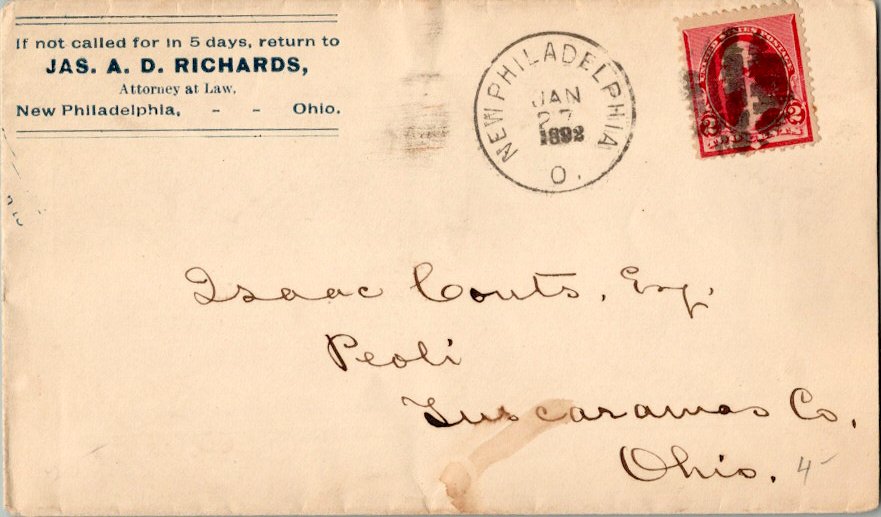 If not called for in 5 days, return to
JAS. A. D. RICHARDS,
Attorney at Law,
New Philadelphia, - - Ohio.
NEW PHILADELPHIA
JAN
27
1892
O.
2 2
Isaac Couts, Esq.
Peoli
Tuscarawas Co,
Ohio. 4